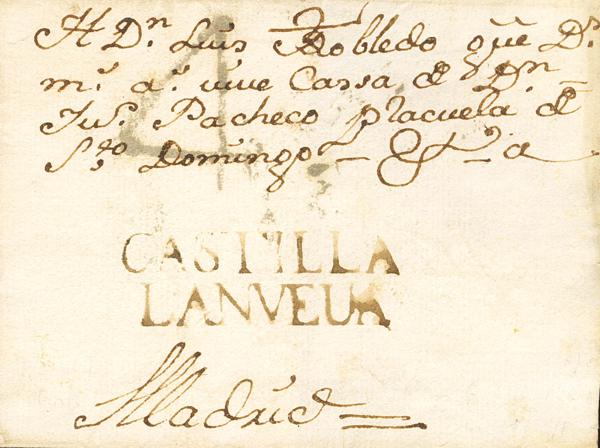 A Dn Luis Robledo que Ds
ms as vive Cassa de Dn
Jus. Pacheco placuela de
Sto Domingo – &a
4
CASTILLA
LANVEUA
Madrid